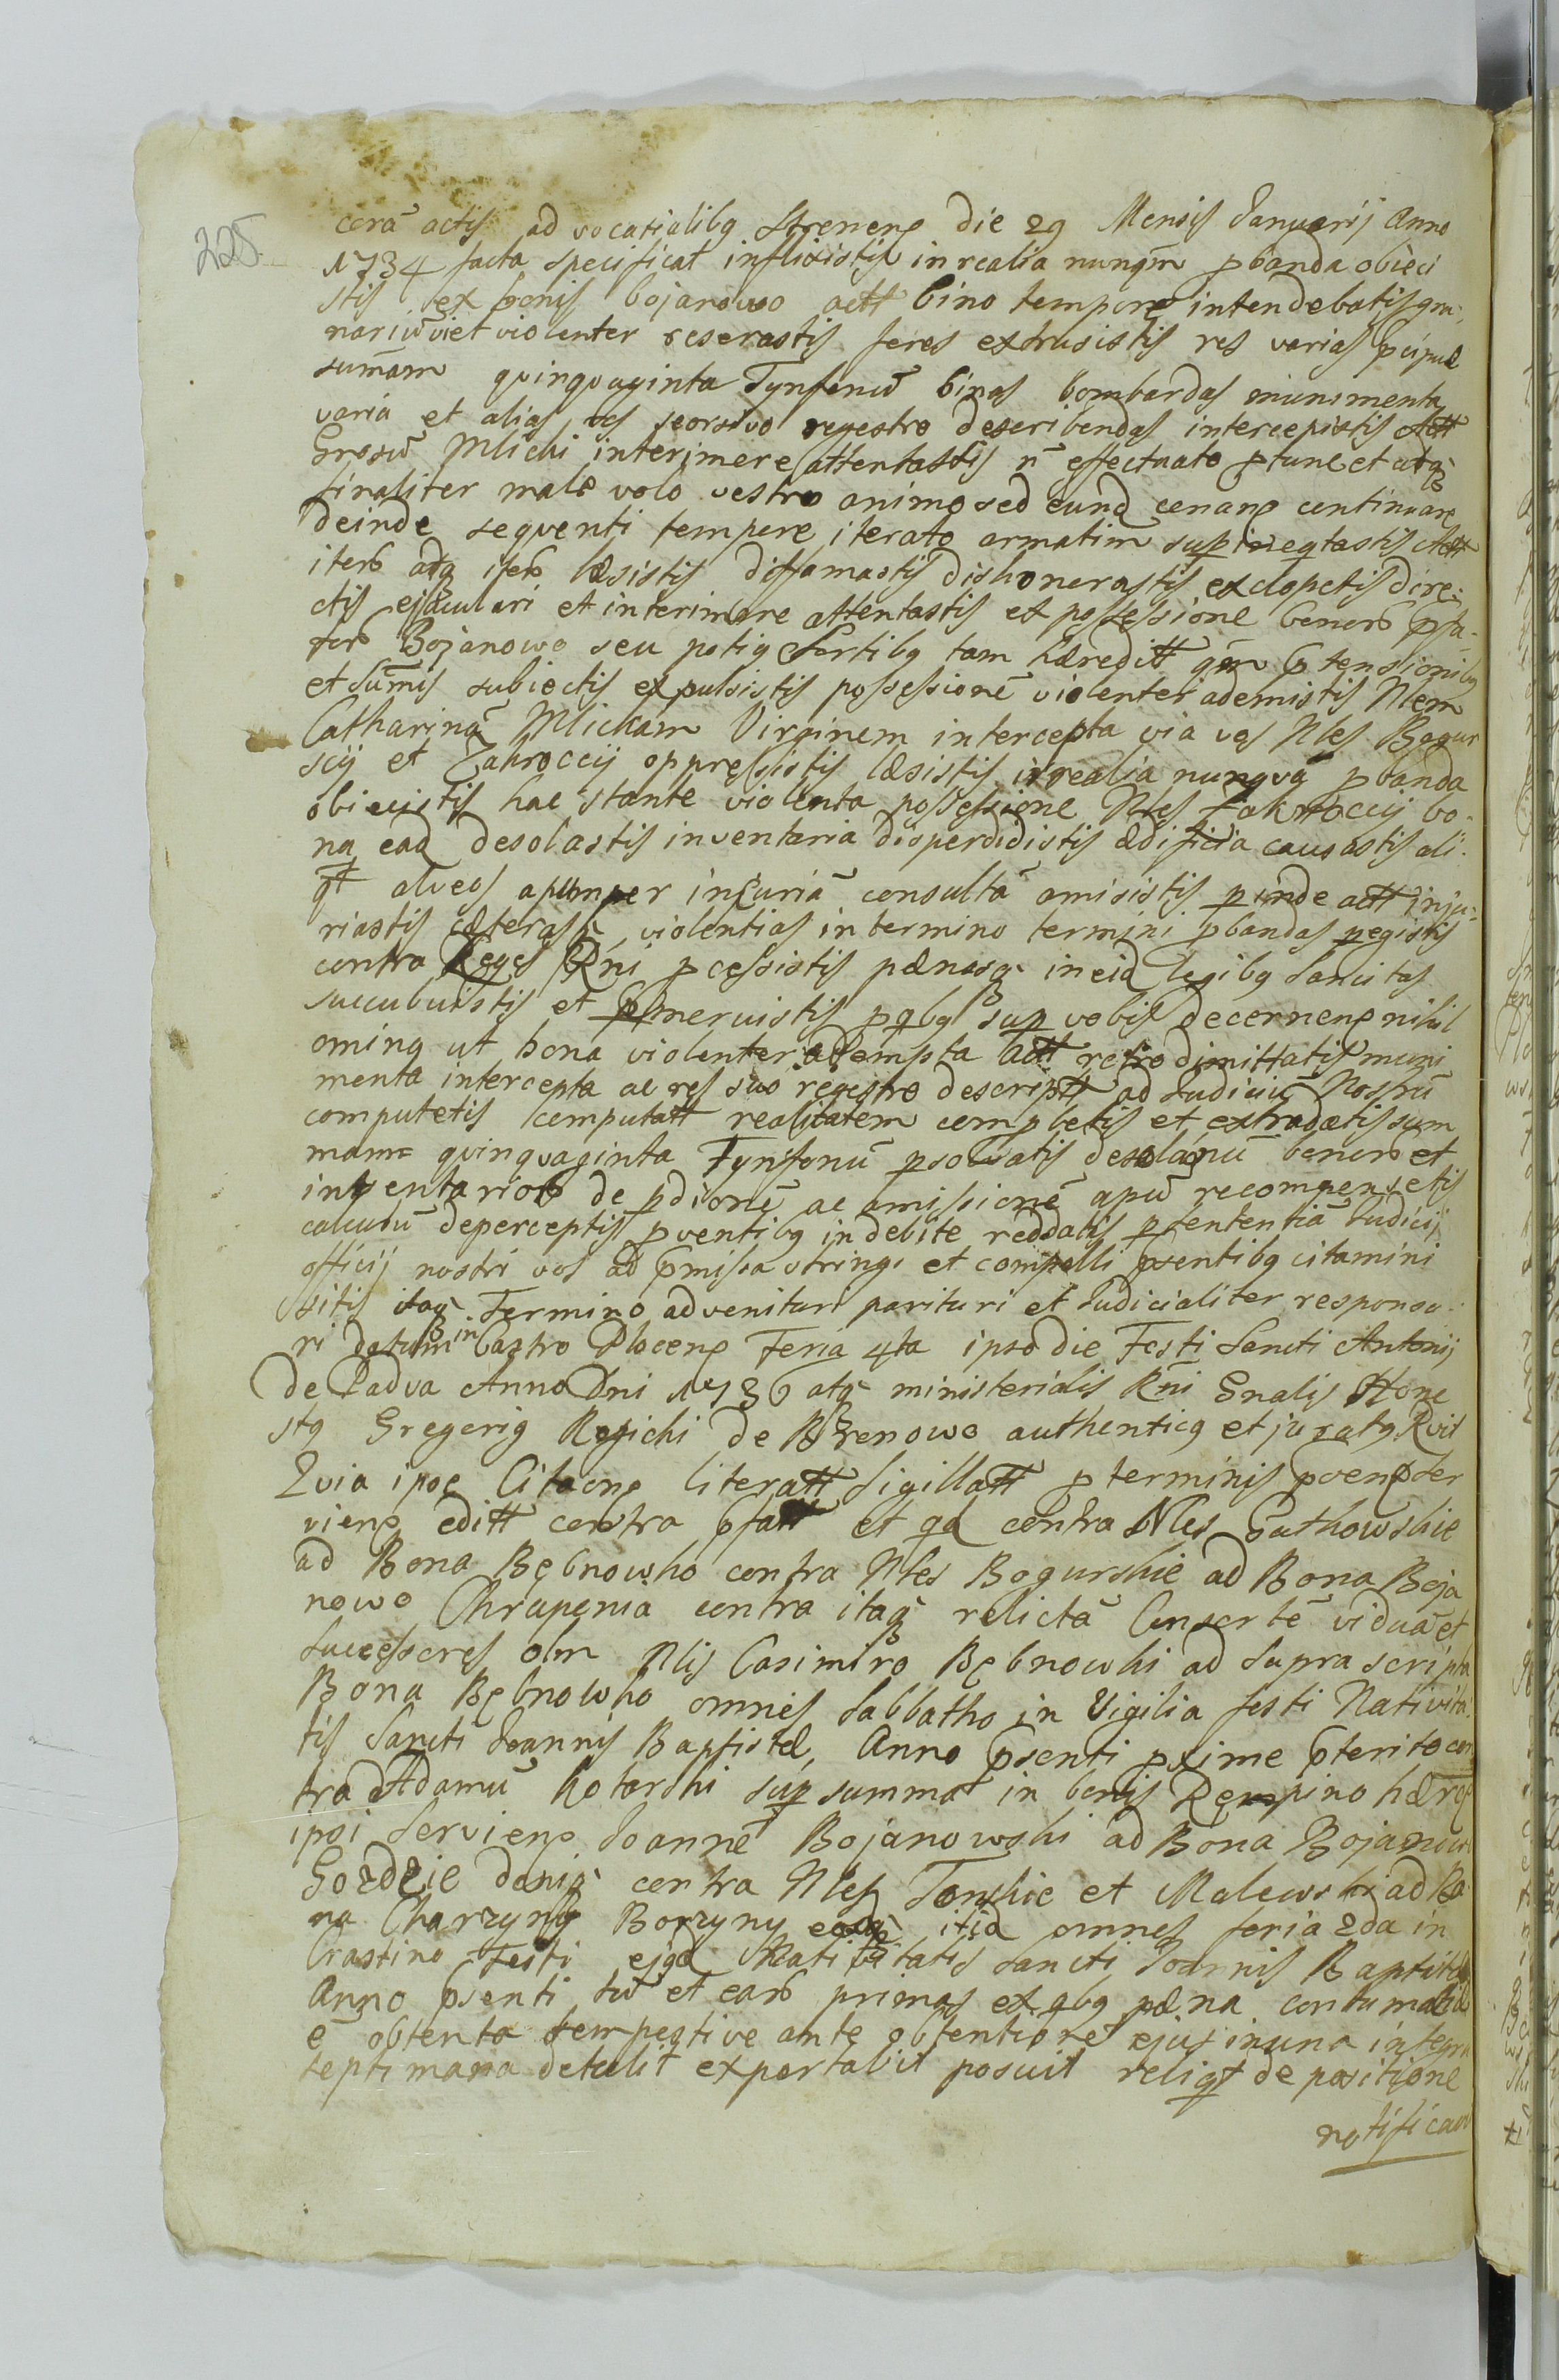 225
corā actis ad vocatialibq Strenens die 29 Mensis Januarij Anno
1734 facta specificat inflixistis in realia nunqm pbanda obieci
stis ex bonis bojanowo actt bino tempore intendebatis gra-
nariū vi et violenter reserastis seras extrusistis res varias pcipue
sum̄am qvinqvaginta Tynfonū binas bombardas munimenta
varia et alias res seorsivo regestro describendas intercepistis Actt
Gnosū Mlicki interimere attentastis n̄ effectuato ptunc et atq
finaliter male volo vestro animo sed eund conans continuare
deinde seqventi tempore iterato armatim sup ineqtastis Actt
iterō atq iterō læsistis diffamastis dishonerastis ex clopetis dire-
ctis ejaculari et interimere attentastis ex possessione bonorō psta-
torō Bojanowo seu potiq Sortibq tam hæreditt qm ptensionibq
et sūmis subiectis expulsistis possessionē violenter ademistis Nlem
Catharinā Mlickam Virginem intercepta via vos Nles Bogur
scij et Zakroccij oppressistis læsistis irrealia nunqvā pbanda
obiecistis hac stante violenta possessione Nles Zakroccij bo-
na ead desolastis inventaria disperdidistis ædificia causastis ali-
qt alveos apum per incuriā consultā amisistis pinde actt inju-
riastis cæterasq violentias in termino termini pbandas pegistis
contra Leges Rni pcessistis pænasq in eid legibq Sancitas
succubuistis et pmeruistis p qbq sup vobis decernens nihil
ominq ut bona violenter adempta actt retro dimittatis muni
menta intercepta ac res suo regestro descriptt ad Judiciū Nostrū
computetis computatt realitatem compbetis et extradatis sum
mam qvinqvaginta Tynfonū psolvatis desolānū bonorō et
inventariorō de pdionē ac amissionē apū recompensetis
calculū de perceptis pventibq indebite reddatis p sententiā Judicij
officij nostri vos ad pmissa stringi et compelli psentibq citamini
sitis itaq Termino advenituri parituri et Judicialiter responsu-
ri datum in Castro Plocens Feria 4ta ipso die Festi Sancti Antonij
de Padva Anno Dni 1736 atq ministerialis Rni Gnalis Hone
stq Gregoriq Rosicki de Brenowo authenticq et juratq Rvit
Qvia ipse Citaons literatt Sigillatt p terminis pvens ser
viens editt contra pfatt et qd contra Nles Gutkowskie
ad Bona Bębnowko contra Nles Bogurskie ad Bona Boja
nowo Chraponia contra itaq relictā Consortē viduā et
Successores olm Nlis Casimiro Bębnowski ad Supra scripta
Bona Bębnowko omnes Sabbatho in Vigilia festi Nativita-
tis Sancti Joannis Baptistæ, Anno psenti pxime pterito con
tra Adamū Kotarski sup summā in bonis Rempino hæreq
ipsi Serviens Joannē Bojanowski ad Bona Bojanow
Gozdzie deniq contra Nles Tonskie et Malewski ad Bo
na Charzyny Borzyny eosdē itid omnes feria 2da in
Crastino Festi ejqd Nativitatis Sancti Joannis Baptistæ
Anno psenti tū et earō primas ex qbq pæna contumaciæ
e obtenta tempestive ante obtentionē ejus in una integra
septimana detulit exportabit posuit reliqt de positione
notificavit